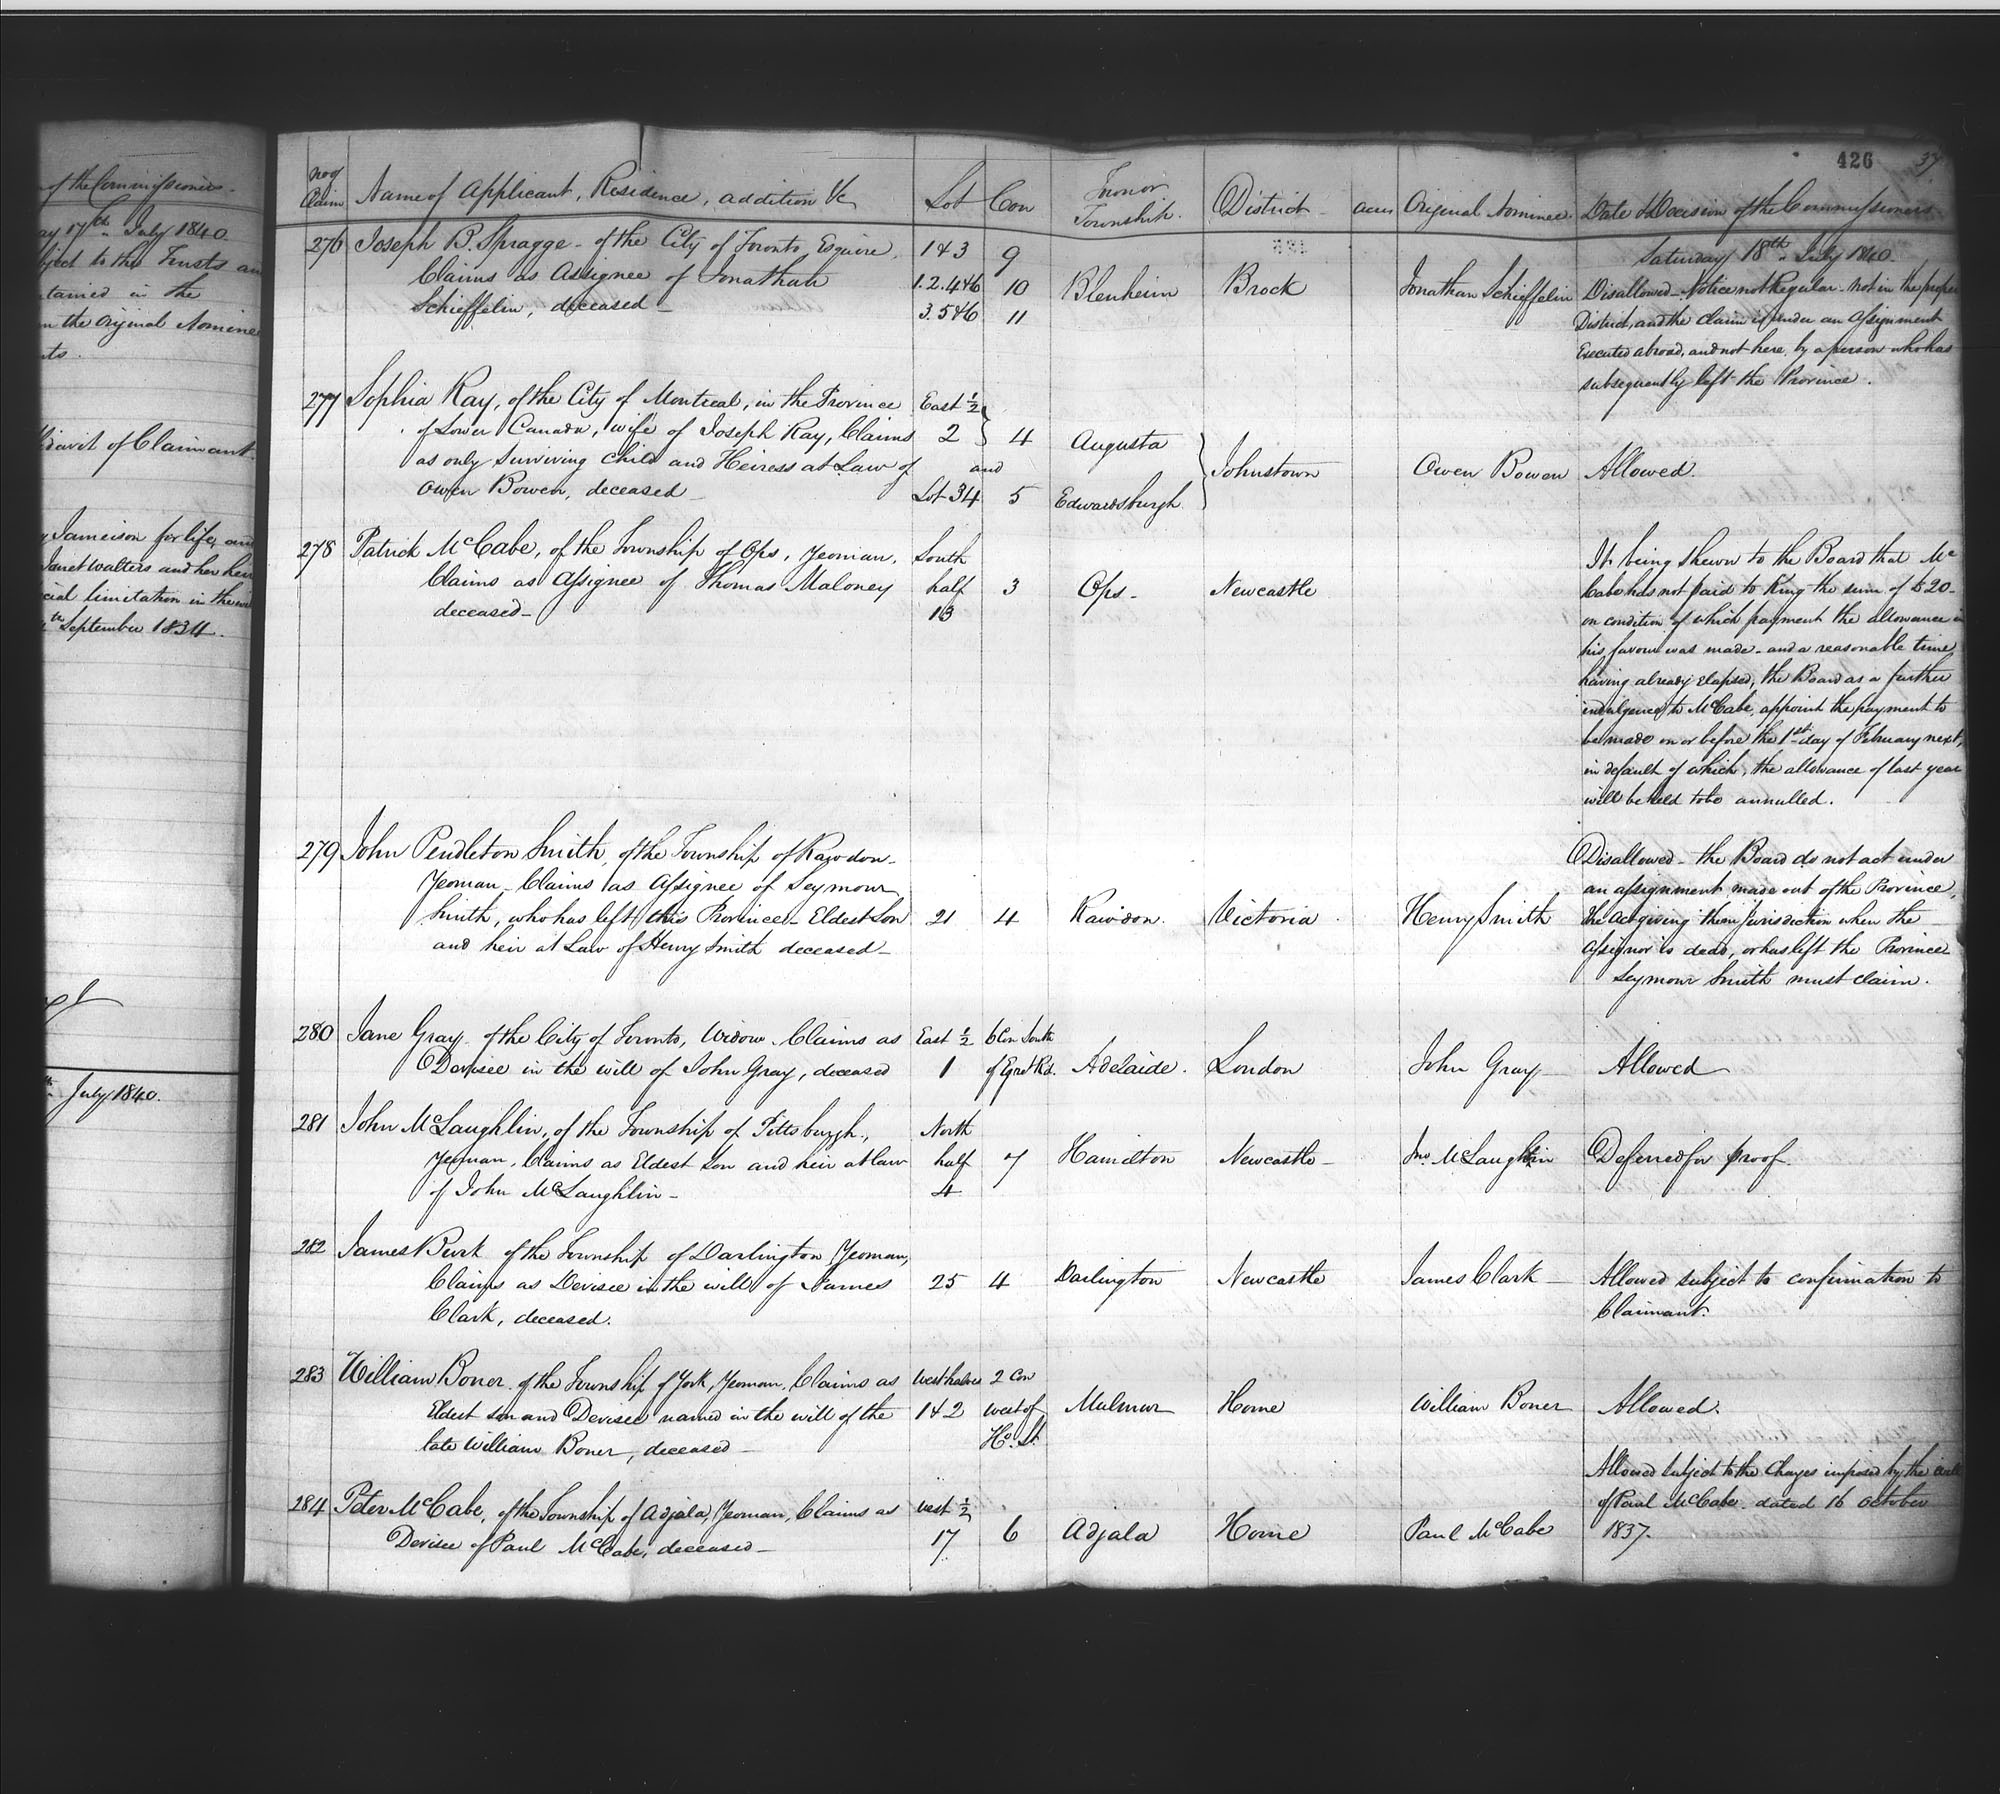 of the Commissioners.
ay 17th July 1840.
bject to the Trusts an
ntained in the
m the original Nomine
nts.
fidavit of Claimant.
y Jameison for life, and
Janet Walters and her heir
cial limitation in the
th September 1834.
July 1840.
426
37
No of Claim
Name of Applicant, Residence, addition &c
Lot
Con
Town or Township.
District
acres
Original Nominee.
Date & Decision of the Commissioners
Saturday 18th July 1840.
276 Joseph B. Spragge - of the City of Toronto Esquire, 1 & 3 9
Claims as Assignee of Jonathah 1. 2. 4 & 6 10 Blenheim Brock Jonathan Schieffelin Disallowed - Notice not Regular - not in the proper
Schieffelin, deceased - 3. 5 & 6 11 District, and the claim is under an Assignment
Executed abroad, and not here, by a person who has
subsequently left the Province.
277 Sophia Ray, of the City of Montreal, in the Province East ½
of Lower Canada, wife of Joseph Ray, Claims 2 4 Augusta
as only surviving child and Heiress at Law of and Johnstown Owen Bowen Allowed.
Owen Bowen, deceased - Lot 34 5 Edwardsburgh
278 Patrick McCabe, of the Township of Ops, Yeoman, South It being shewn to the Board that Mc
Claims as Assignee of Thomas Maloney half 3 Ops - Newcastle Cabe has not paid to King the sum of £20 -
deceased - 13 on condition of which payment the allowance in
his favour was made - and a reasonable time
having already elapsed, the Board as a further
indulgence to McCabe, appoint the payment to
be made on or before the 1st day of February next,
in default of which, the allowance of last year
will be held to be annulled.
279 John Pendleton Smith, of the Township of Rawdon - Disallowed - the Board do not act under
Yeoman - Claims as Assignee of Seymour an assignment made out of the Province,
Smith, who has left this Province - Eldest Son 21 4 Rawdon. Victoria Henry Smith the Act giving them jurisdiction when the
and heir at Law of Henry Smith deceased - Assignor is dead, or has left the Province
Seymour Smith must claim.
280 Jane Gray of the City of Toronto, Widow. Claims as East ½ 6 Con South
Devisee in the will of John Gray, deceased 1 of Egrd. Rd. Adelaide. London John Gray - Allowed
281 John McLaughlin, of the Township of Pittsburgh, North
Yeoman, Claims as Eldest Son and heir at law half 7 Hamilton Newcastle - Jno. McLaughlin Deferred for proof.
of John McLaughlin - 4
282 James Burk of the Township of Darlington Yeoman,
Claims as Devisee in the will of James 25 4 Darlington Newcastle James Clark - Allowed subject to confirmation to
Clark, deceased. Claimant.
283 William Boner of the Township of York, Yeoman, Claims as West halves 2 Con
Eldest son and Devisee named in the will of the 1 & 2 west of Mulmur Home William Boner Allowed.
late William Boner, deceased - Ho. St.
Allowed subject to the Charges imposed by the will
284 Peter McCabe, of the Township of Adjala, Yeoman, Claims as West ½ of Paul McCabe dated 16 October
Devisee of Paul McCabe, deceased - 17 6 Adjala Home Paul McCabe 1837.